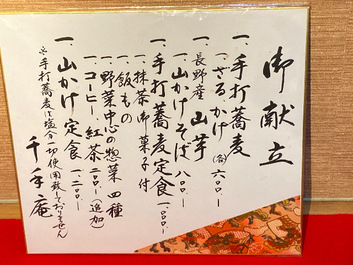 御献立
一、手打蕎麦
一、ざるかけ(各)六〇〇―
一、長野産 山芋
一、山かけそば 八〇〇―
一、手打蕎麦定食 一、〇〇〇―
一、抹茶御菓子付
一、飯もの
一、野菜中心の惣菜 四種
一、コーヒー、紅茶 二〇〇―(追加)
一、山かけ定食 一、二〇〇―
※手打蕎麦は塩分一切使用致しておりません
千手庵